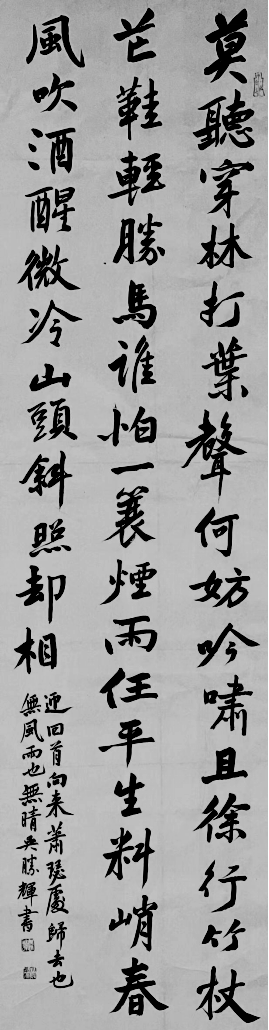 莫聽穿林打葉聲何妨吟嘯且徐行竹杖
芒鞋輕勝馬誰怕一蓑煙雨任平生料峭春
風吹酒醒微冷山頭斜照却相
迎回首向来蕭瑟處歸去也
無風雨也無晴吳勝輝書